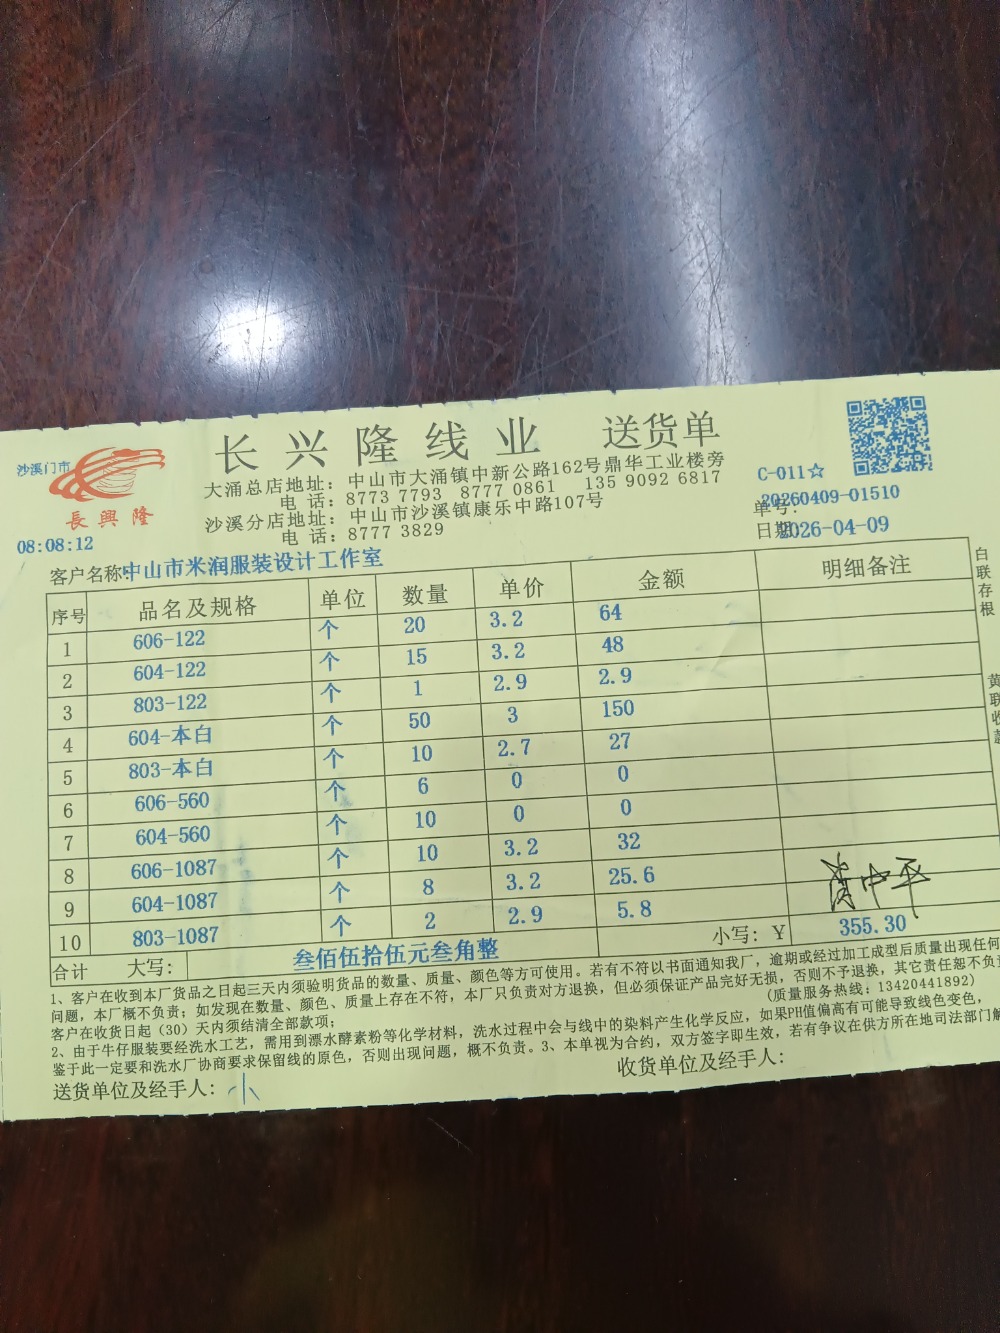 沙溪门市
長興隆
08:08:12
长兴隆线业 送货单
大涌总店地址：中山市大涌镇中新公路162号鼎华工业楼旁
电话：8773 7793 8777 0861 135 9092 6817
沙溪分店地址：中山市沙溪镇康乐中路107号
电话：8777 3829
C-011☆
单号：20260409-01510
日期：2026-04-09
客户名称：中山市米润服装设计工作室
序号 品名及规格 单位 数量 单价 金额 明细备注
1 606-122 个 20 3.2 64
2 604-122 个 15 3.2 48
3 803-122 个 1 2.9 2.9
4 604-本白 个 50 3 150
5 803-本白 个 10 2.7 27
6 606-560 个 6 0 0
7 604-560 个 10 0 0
8 606-1087 个 10 3.2 32
9 604-1087 个 8 3.2 25.6
10 803-1087 个 2 2.9 5.8
合计 大写：叁佰伍拾伍元叁角整 小写：￥ 355.30
白联存根
黄联收
1、客户在收到本厂货品之日起三天内须验明货品的数量、质量、颜色等方可使用。若有不符以书面通知我厂，逾期或经过加工成型后质量出现任何
问题，本厂概不负责；如发现在数量、颜色、质量上存在不符，本厂只负责对方退换，但必须保证产品完好无损，否则不予退换，其它责任恕不负
客户在收货日起（30）天内须结清全部款项；（质量服务热线：13420441892）
2、由于牛仔服装要经洗水工艺，需用到漂水酵素粉等化学材料，洗水过程中会与线中的染料产生化学反应，如果PH值偏高有可能导致线色变色，
鉴于此一定要和洗水厂协商要求保留线的原色，否则出现问题，概不负责。3、本单视为合约，双方签字即生效，若有争议在供方所在地司法部门解
送货单位及经手人：小
收货单位及经手人：